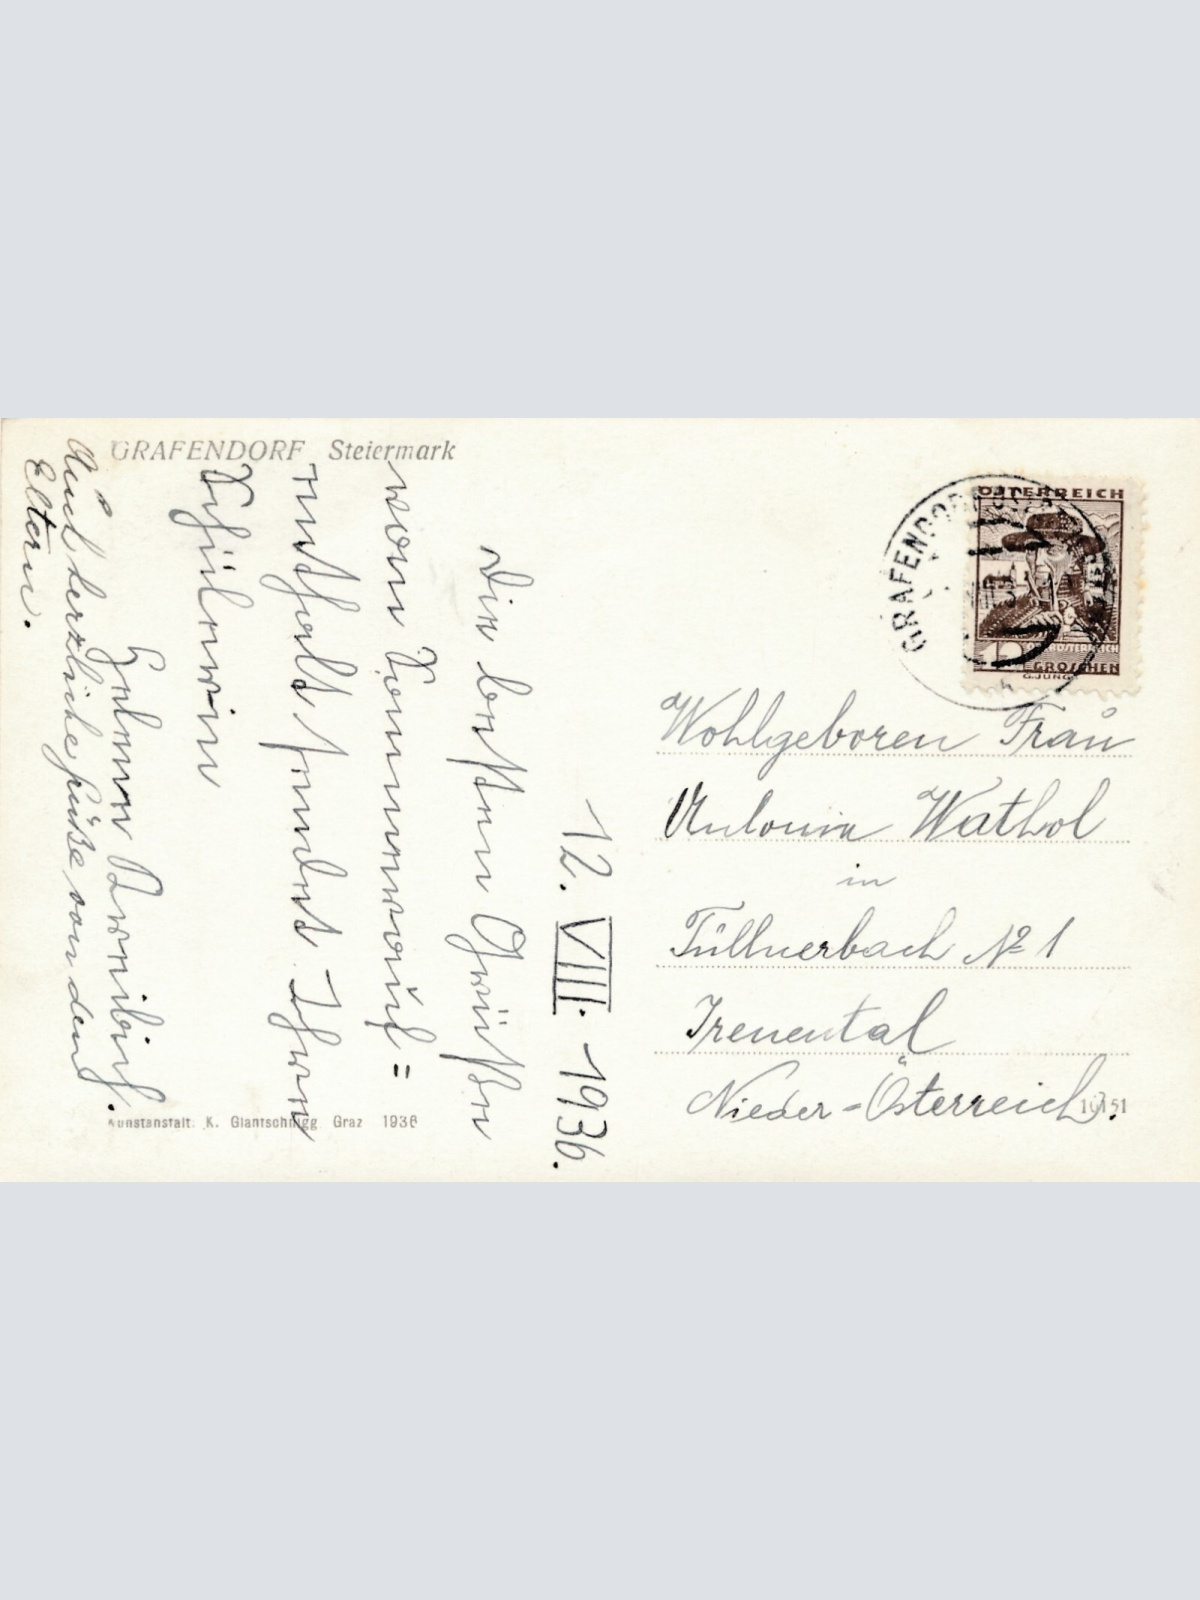 GRAFENDORF Steiermark
12. VIII. 1936.
Die besten Grüße
vom Sommerauf=
enthalt sendet Ihre
Schülerin
Helene
Auch herzliche Grüße von den
Eltern.
Kunstanstalt K. Glantschnigg Graz 1936
GRAFENDORF
ÖSTERREICH
OBERÖSTERREICH
12
GROSCHEN
G.JUNG
Wohlgeboren Frau
Antonia Wathol
in
Tüllnerbach № 1
Irenental
Nieder-Österreich.
10151